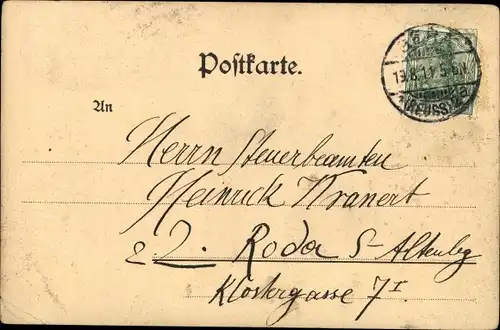 Postkarte.
An
19.8.11 5-6N
(REUSS) a
Herrn Steuerbeamten
Heinrick Kranert
Roda S-Altenbg
Klostergasse 7 I